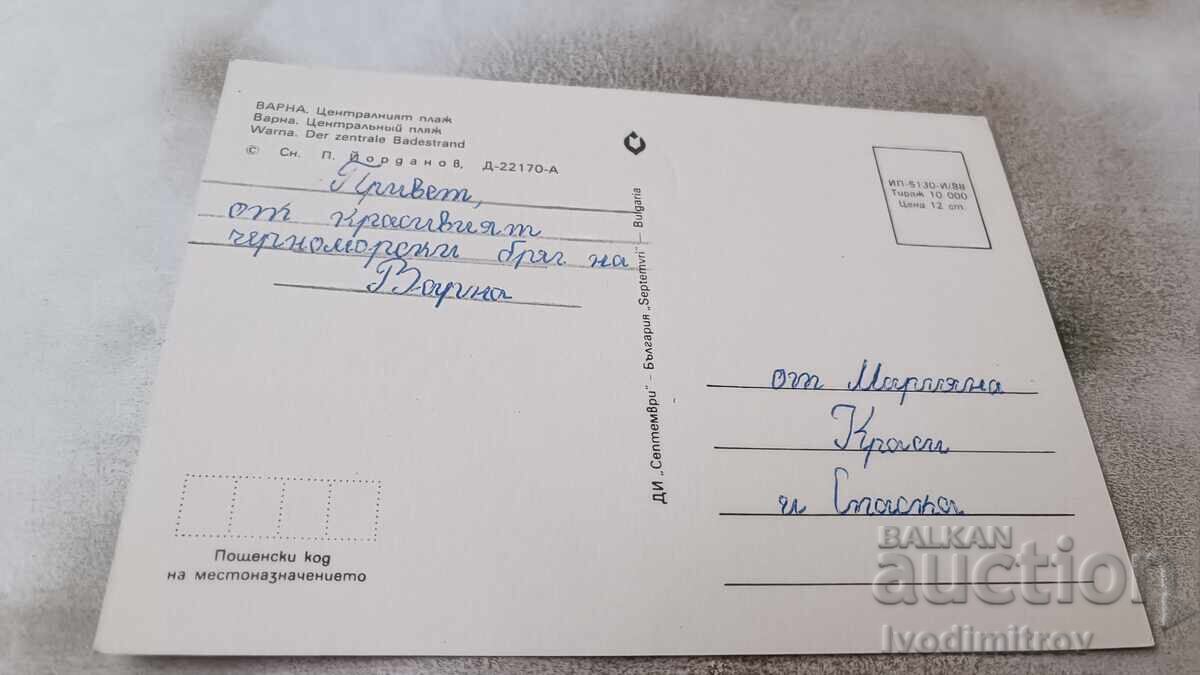 ВАРНА. Централният плаж
Варна. Центральный пляж
Warna. Der zentrale Badestrand
© Сн. П. Йорданов, Д-22170-А
Привет,
от красивият
черноморски бряг на
Варна
Пощенски код
на местоназначението
ДИ „Септември" – България „Septemvri" – Bulgaria
ИП-5130-И/88
Тираж 10 000
Цена 12 ст.
от Марияна
Краси
и Спаска
BALKAN
auction
Ivodimitrov